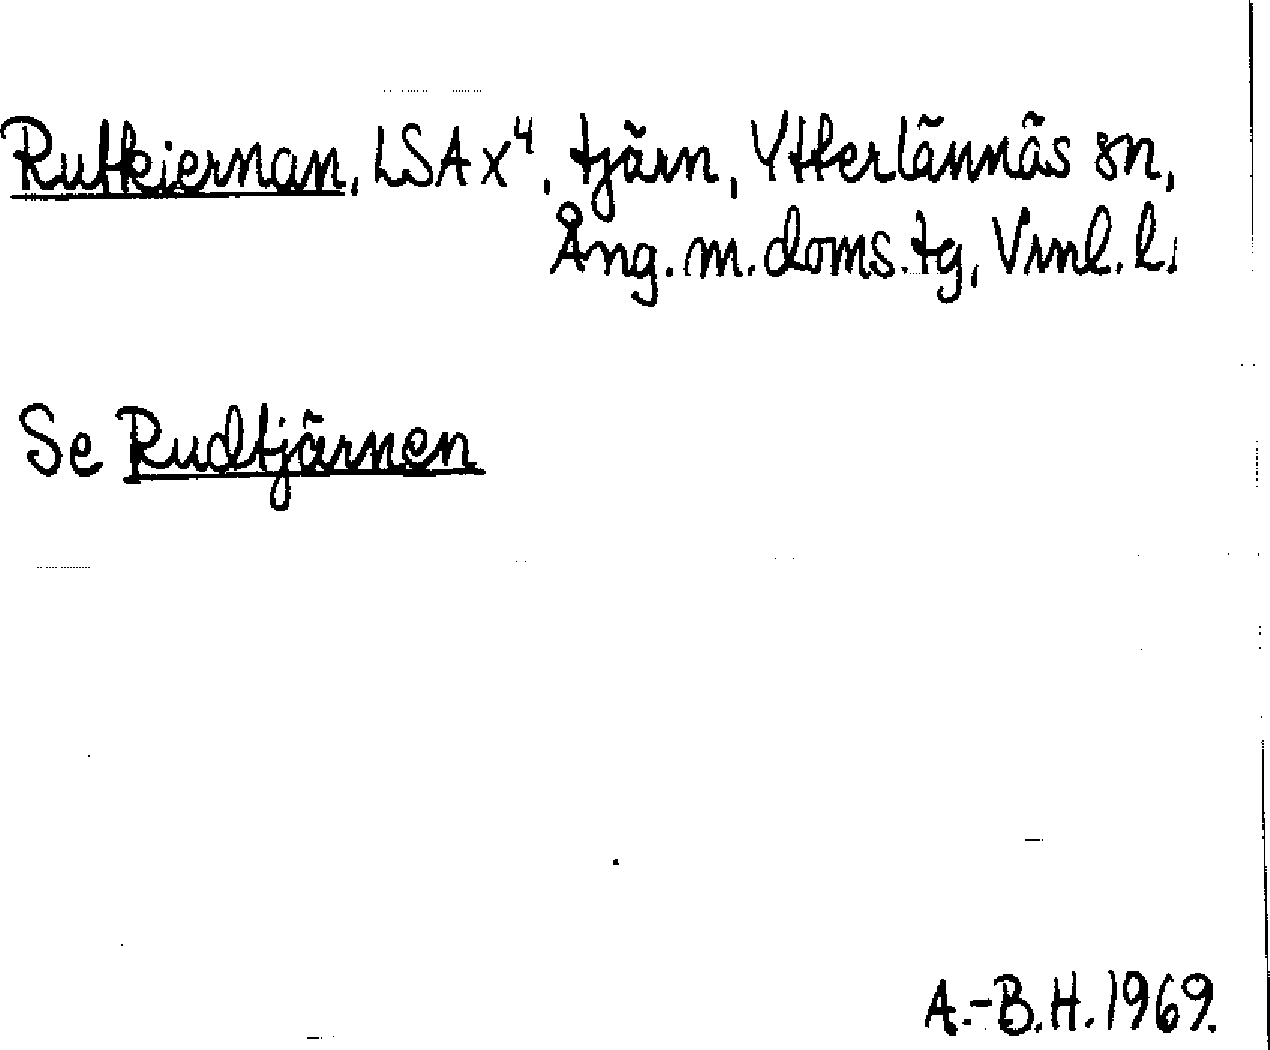 Rutkiernan, LSA x⁴, tjärn, Ytterlännäs sn,
Ång. m. doms. tg, Vnl. l.
Se Rudtjärnen
A.-B.H. 1969.